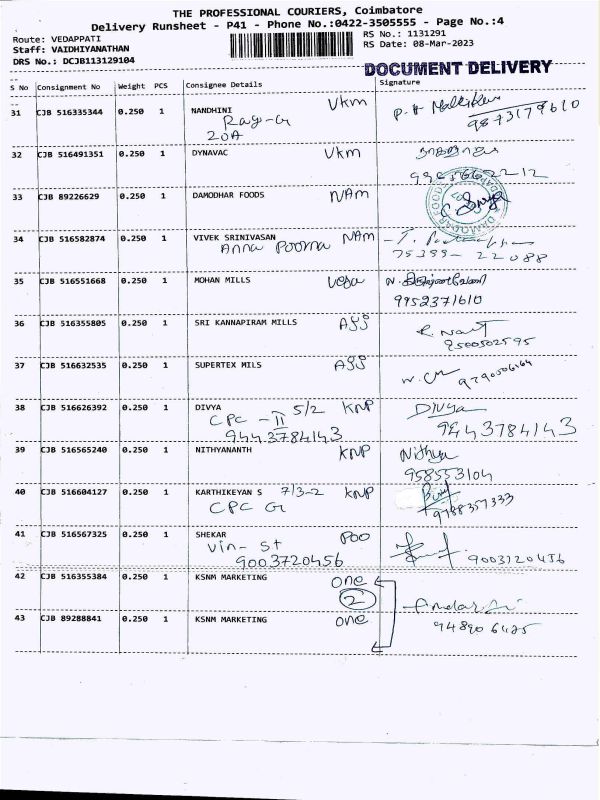 THE PROFESSIONAL COURIERS, Coimbatore
Delivery Runsheet - P41 - Phone No.:0422-3505555 - Page No.:4
Route: VEDAPPATI
Staff: VAIDHIYANATHAN
DRS No.: DCJB113129104
RS No.: 1131291
RS Date: 08-Mar-2023
DOCUMENT DELIVERY
S No Consignment No Weight PCS Consignee Details Signature
31 CJB 516335344 0.250 1 NANDHINI Vkm
20A
9873179610
32 CJB 516491351 0.250 1 DYNAVAC Vkm
33 CJB 89226629 0.250 1 DAMODHAR FOODS NAm
34 CJB 516582874 0.250 1 VIVEK SRINIVASAN NAm
Anna Poorna
75399-22088
35 CJB 516551668 0.250 1 MOHAN MILLS
9952371610
36 CJB 516355805 0.250 1 SRI KANNAPIRAM MILLS
8500502595
37 CJB 516632535 0.250 1 SUPERTEX MILS
9790506164
38 CJB 516626392 0.250 1 DIVYA 5/2 KNP Divya
CPC - II
9443784143 9443784143
39 CJB 516565240 0.250 1 NITHYANANTH KNP Nithya
958553104
40 CJB 516604127 0.250 1 KARTHIKEYAN S 7/3-2 KNP
CPC G
9788357333
41 CJB 516567325 0.250 1 SHEKAR Poo
Vin- St
9003720456 9003720456
42 CJB 516355384 0.250 1 KSNM MARKETING one
2
43 CJB 89288841 0.250 1 KSNM MARKETING one
948906425